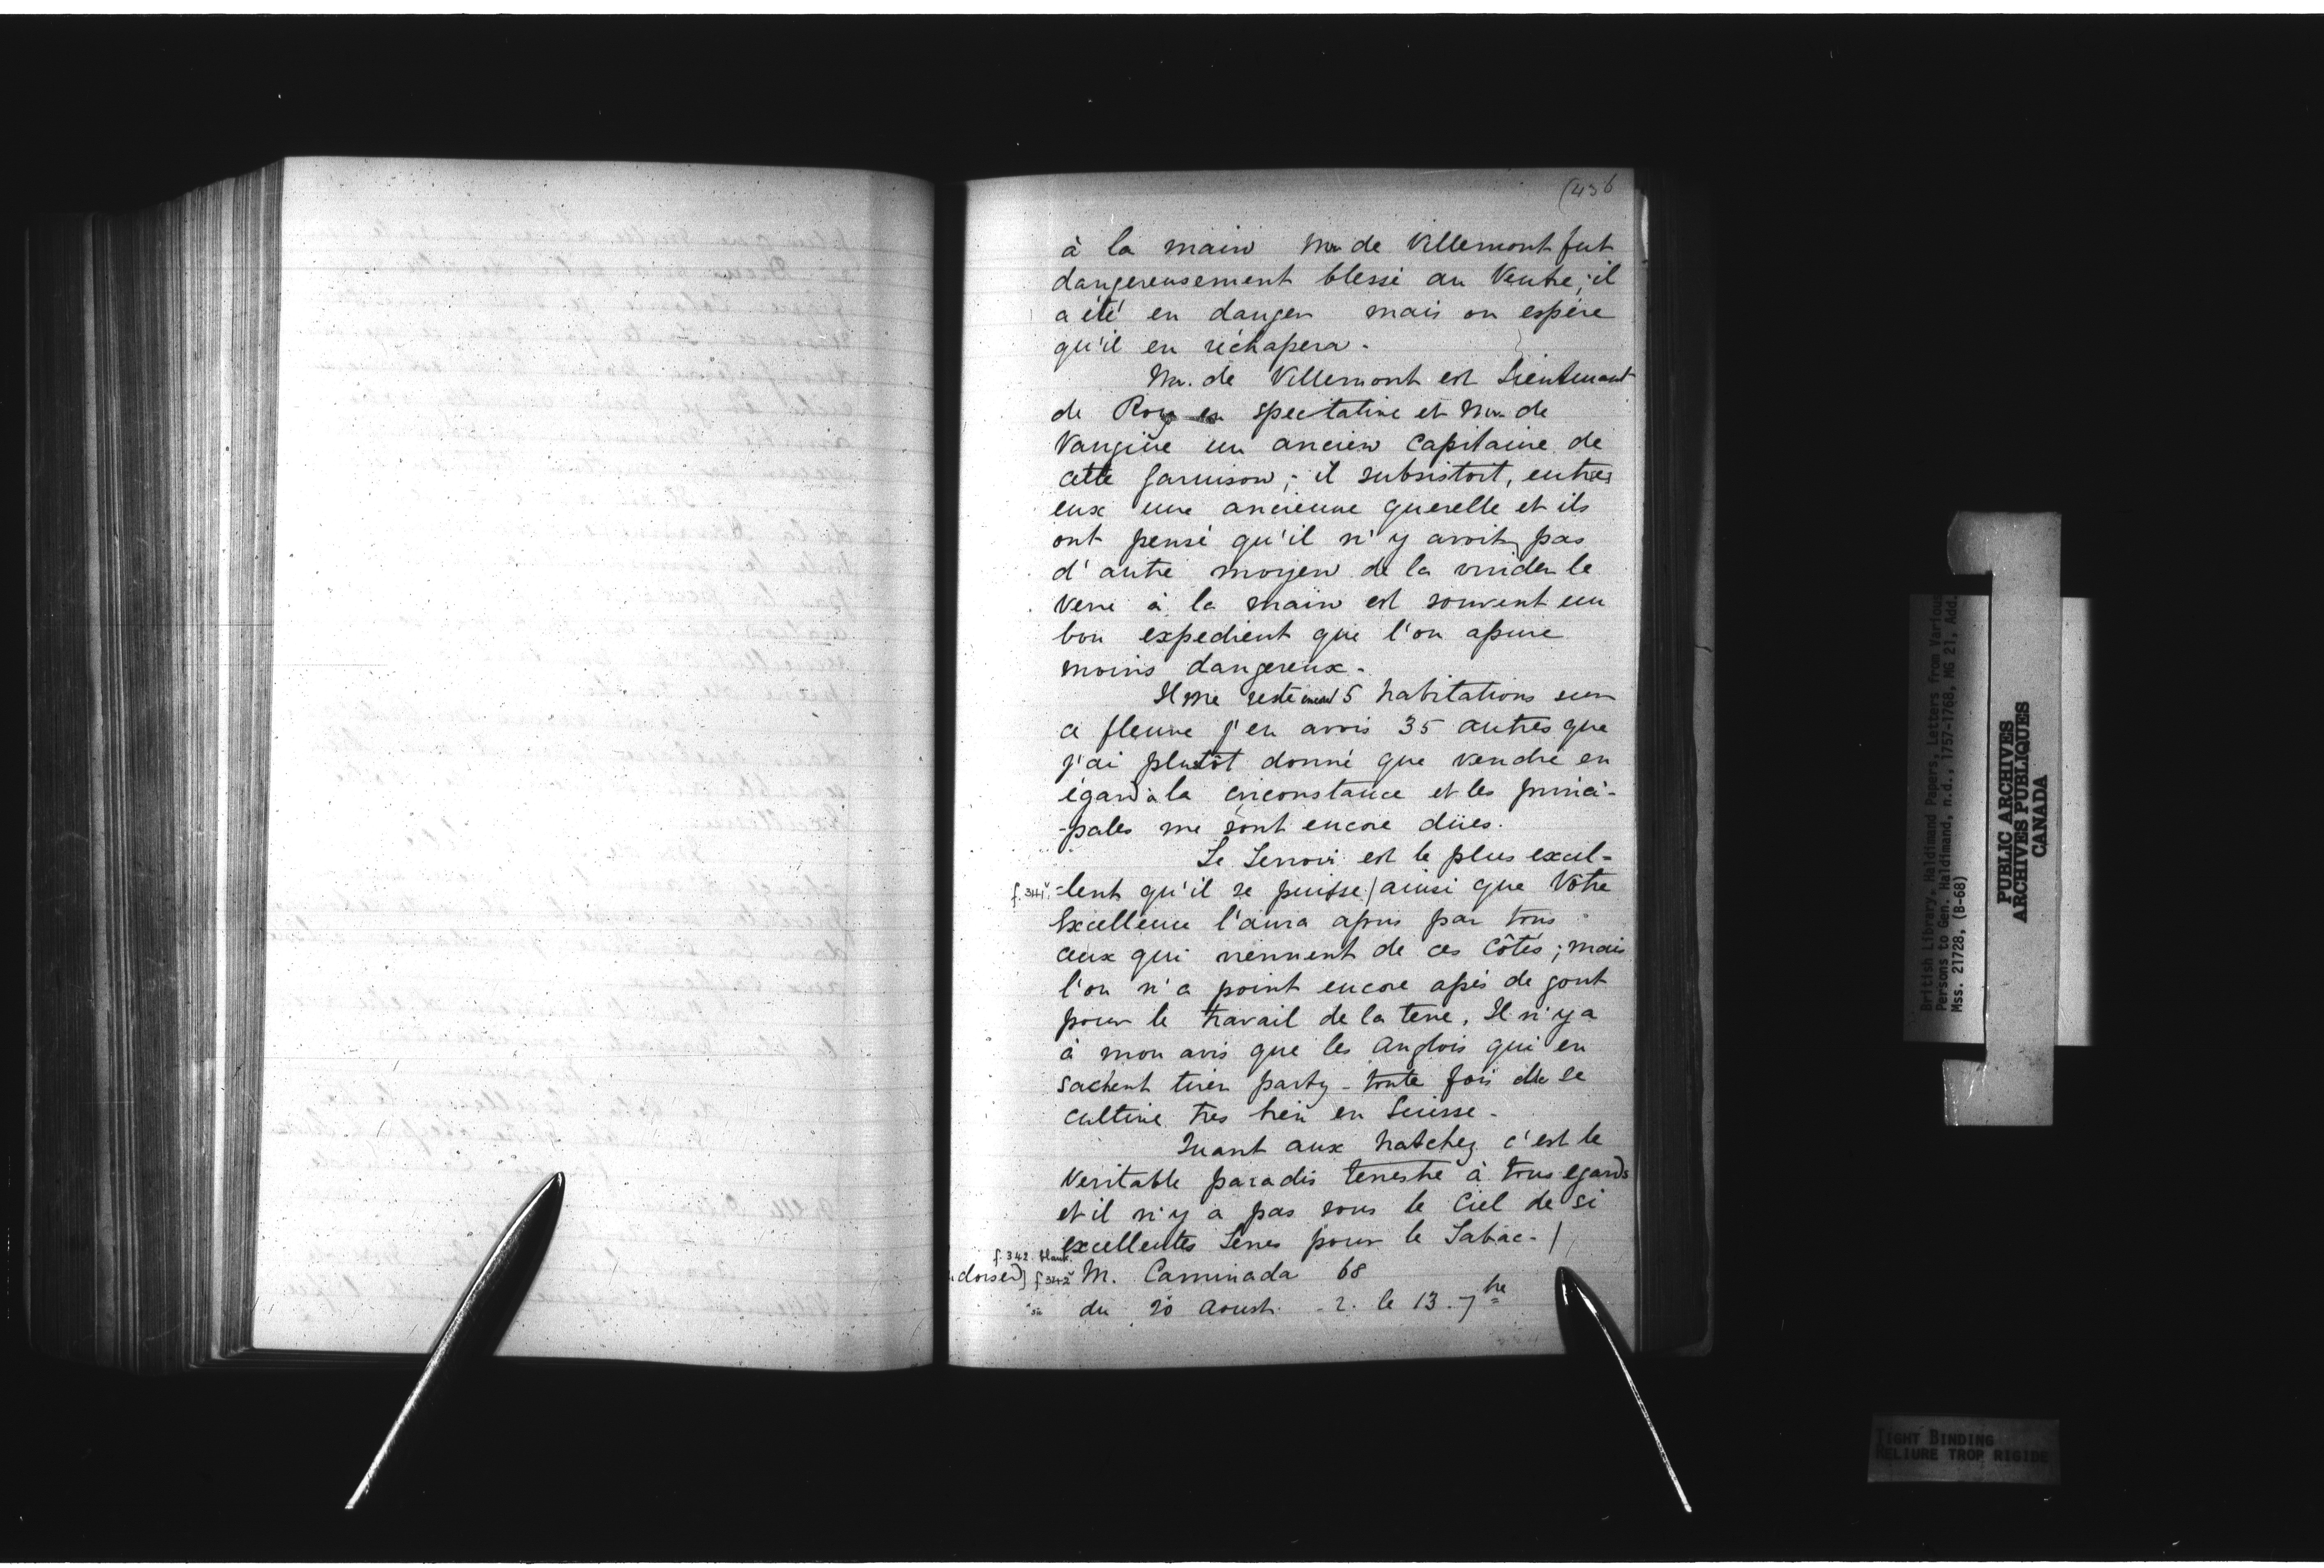 (436
à la main Mr. de Villemont fut
dangereusement blessé au Ventre; il
a été en danger mais on espère
qu'il en réchapera.
Mr. de Villemont est Lieutenant
de Roy en spectative et Mr. de
Vangine un ancien Capitaine de
cette garnison; il subsistoit, entres
eux une ancienne querelle et ils
ont pensé qu'il n'y avoit pas
d'autre moyen de la vuider le
verre à la main est souvent un
bon expedient que l'on assure
moins dangereux.
Il me reste encore 5 habitations sur
ce fleuve j'en avois 35 autres que
j'ai plutôt donné que vendre en
égard à la circonstance et les princi-
-pales me sont encore dües.
Le Terroir est le plus excel-
f. 341v. -lent qu'il se puisse / ainsi que Vôtre
Excellence l'aura apris par tous
ceux qui viennent de ces Côtés; mais
l'on n'a point encore assés de gout
pour le travail de la terre, Il n'y a
à mon avis que les Anglois qui en
sachent tirer party - toute fois elle se
cultive tres bien en Suisse -
Quant aux Natchez c'est le
Veritable paradis terrestre à tous egards
et il n'y a pas sous le Ciel de si
excellentes Terres pour le Tabac - /
f. 342. blank.
dorsed] f 342v M. Caminada 68
du 20 Aoust. - 2. le 13. 7bre
British Library, Haldimand Papers, Letters from Variou
Persons to Gen. Haldimand, n.d., 1757-1768, MG 21, Add.
Mss. 21728, (B-68)
PUBLIC ARCHIVES
ARCHIVES PUBLIQUES
CANADA
TIGHT BINDING
RELIURE TROP RIGIDE